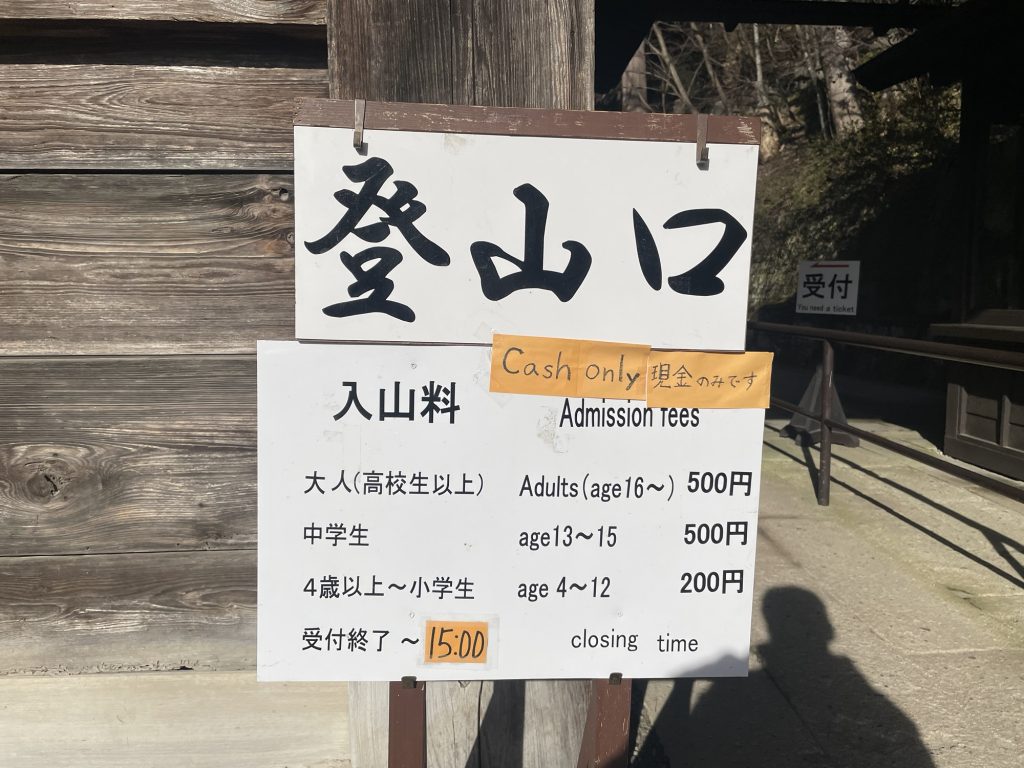 登山口
受付
You need a ticket
Cash only 現金のみです
入山料 Admission fees
大人(高校生以上) Adults(age16～) 500円
中学生 age13～15 500円
4歳以上～小学生 age 4～12 200円
受付終了～15:00 closing time